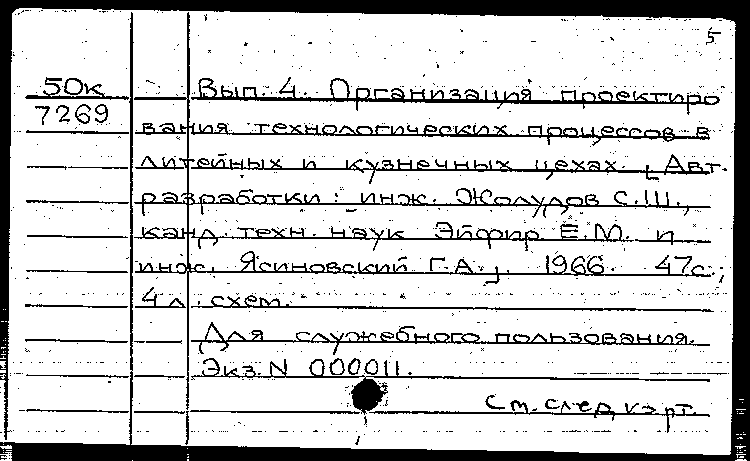 5
50к Вып. 4. Организация проектиро
7269
вания технологических процессов в
литейных и кузнечных цехах. [Авт.
разработки: инж. Жолудов С.Ш.,
канд. техн. наук Эйфир Е.М. и
инж. Ясиновский Г.А.]. 1966. 47с.;
4 л. схем.
Для служебного пользования.
Экз. N 000011.
См. след. карт.